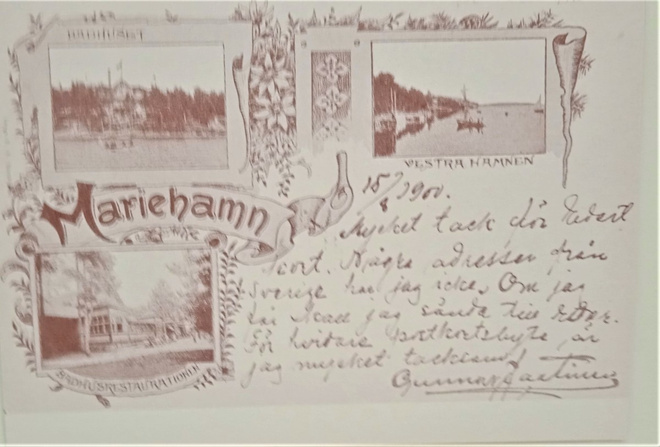 BADHUSET
VESTRA HAMNEN
Mariehamn
BADHUSRESTAURATIONEN
15/8 1900.
Mycket tack för Edert
kort. Några adresser från
Sverige har jag icke. Om jag
får skall jag sända till Eder.
För vidare postkortsbyte är
jag mycket tacksam!
Gunnar